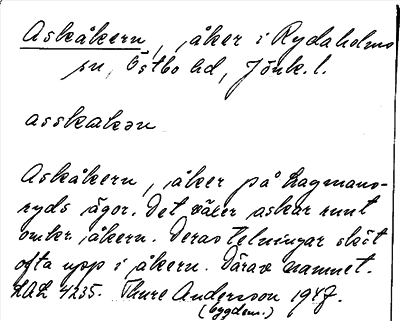 Askåkern, åker i Rydaholms
sn, Östbo hd, Jönk. l.
asskakən
Askåkern, åker på Lagmans-
ryds ägor. Det växer askar runt
omkr åkern. Deras telningar sköt
ofta upp i åkern. Därav namnet.
LAL 4235. Thure Andersson 1947.
(bygdem.)